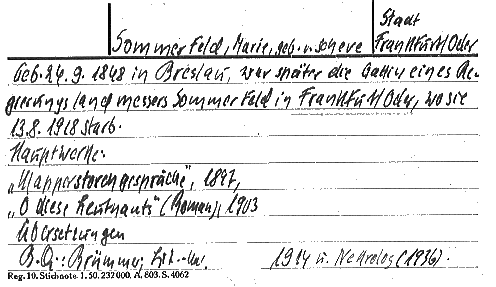 Stadt
Sommerfeld, Marie, geb. v. Scheve Frankfurt/Oder
Geb. 24. 9. 1848 in Breslau, war später die Gattin eines Re-
gierungslandmessers Sommerfeld in Frankfurt/Oder, wo sie
13. 8. 1918 starb.
Hauptwerke:
„Klapperstorchgespräche", 1897,
„O diese Leutnants" (Roman), 1903
Übersetzungen
B. Q.: Brümmer, 1914 u. Nekrolog (1936).
Reg. 10. Stichnote. 1. 50. 232000. A. 803. S. 4062